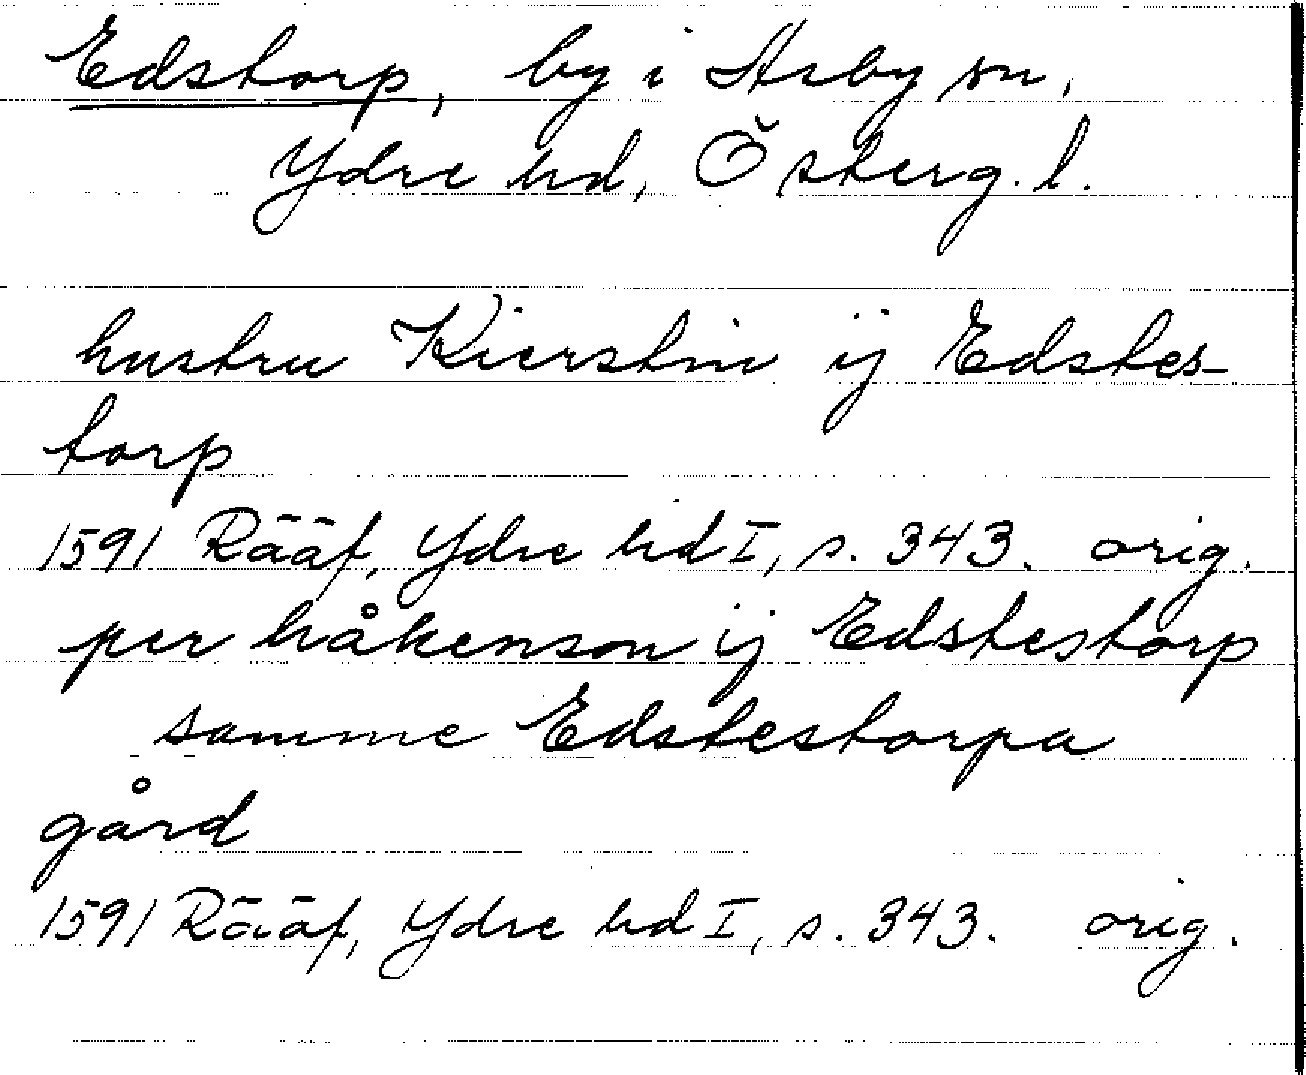 Edstorp, by i Asby sn,
Ydre hd, Österg. l.
hustru Kierstin ij Edstes-
torp
1591 Rääf, Ydre hd I, s. 343. orig.
per håkenson ij Edstestorp
samme Edstestorpa
gård
1591 Rääf, Ydre hd I, s. 343. orig.